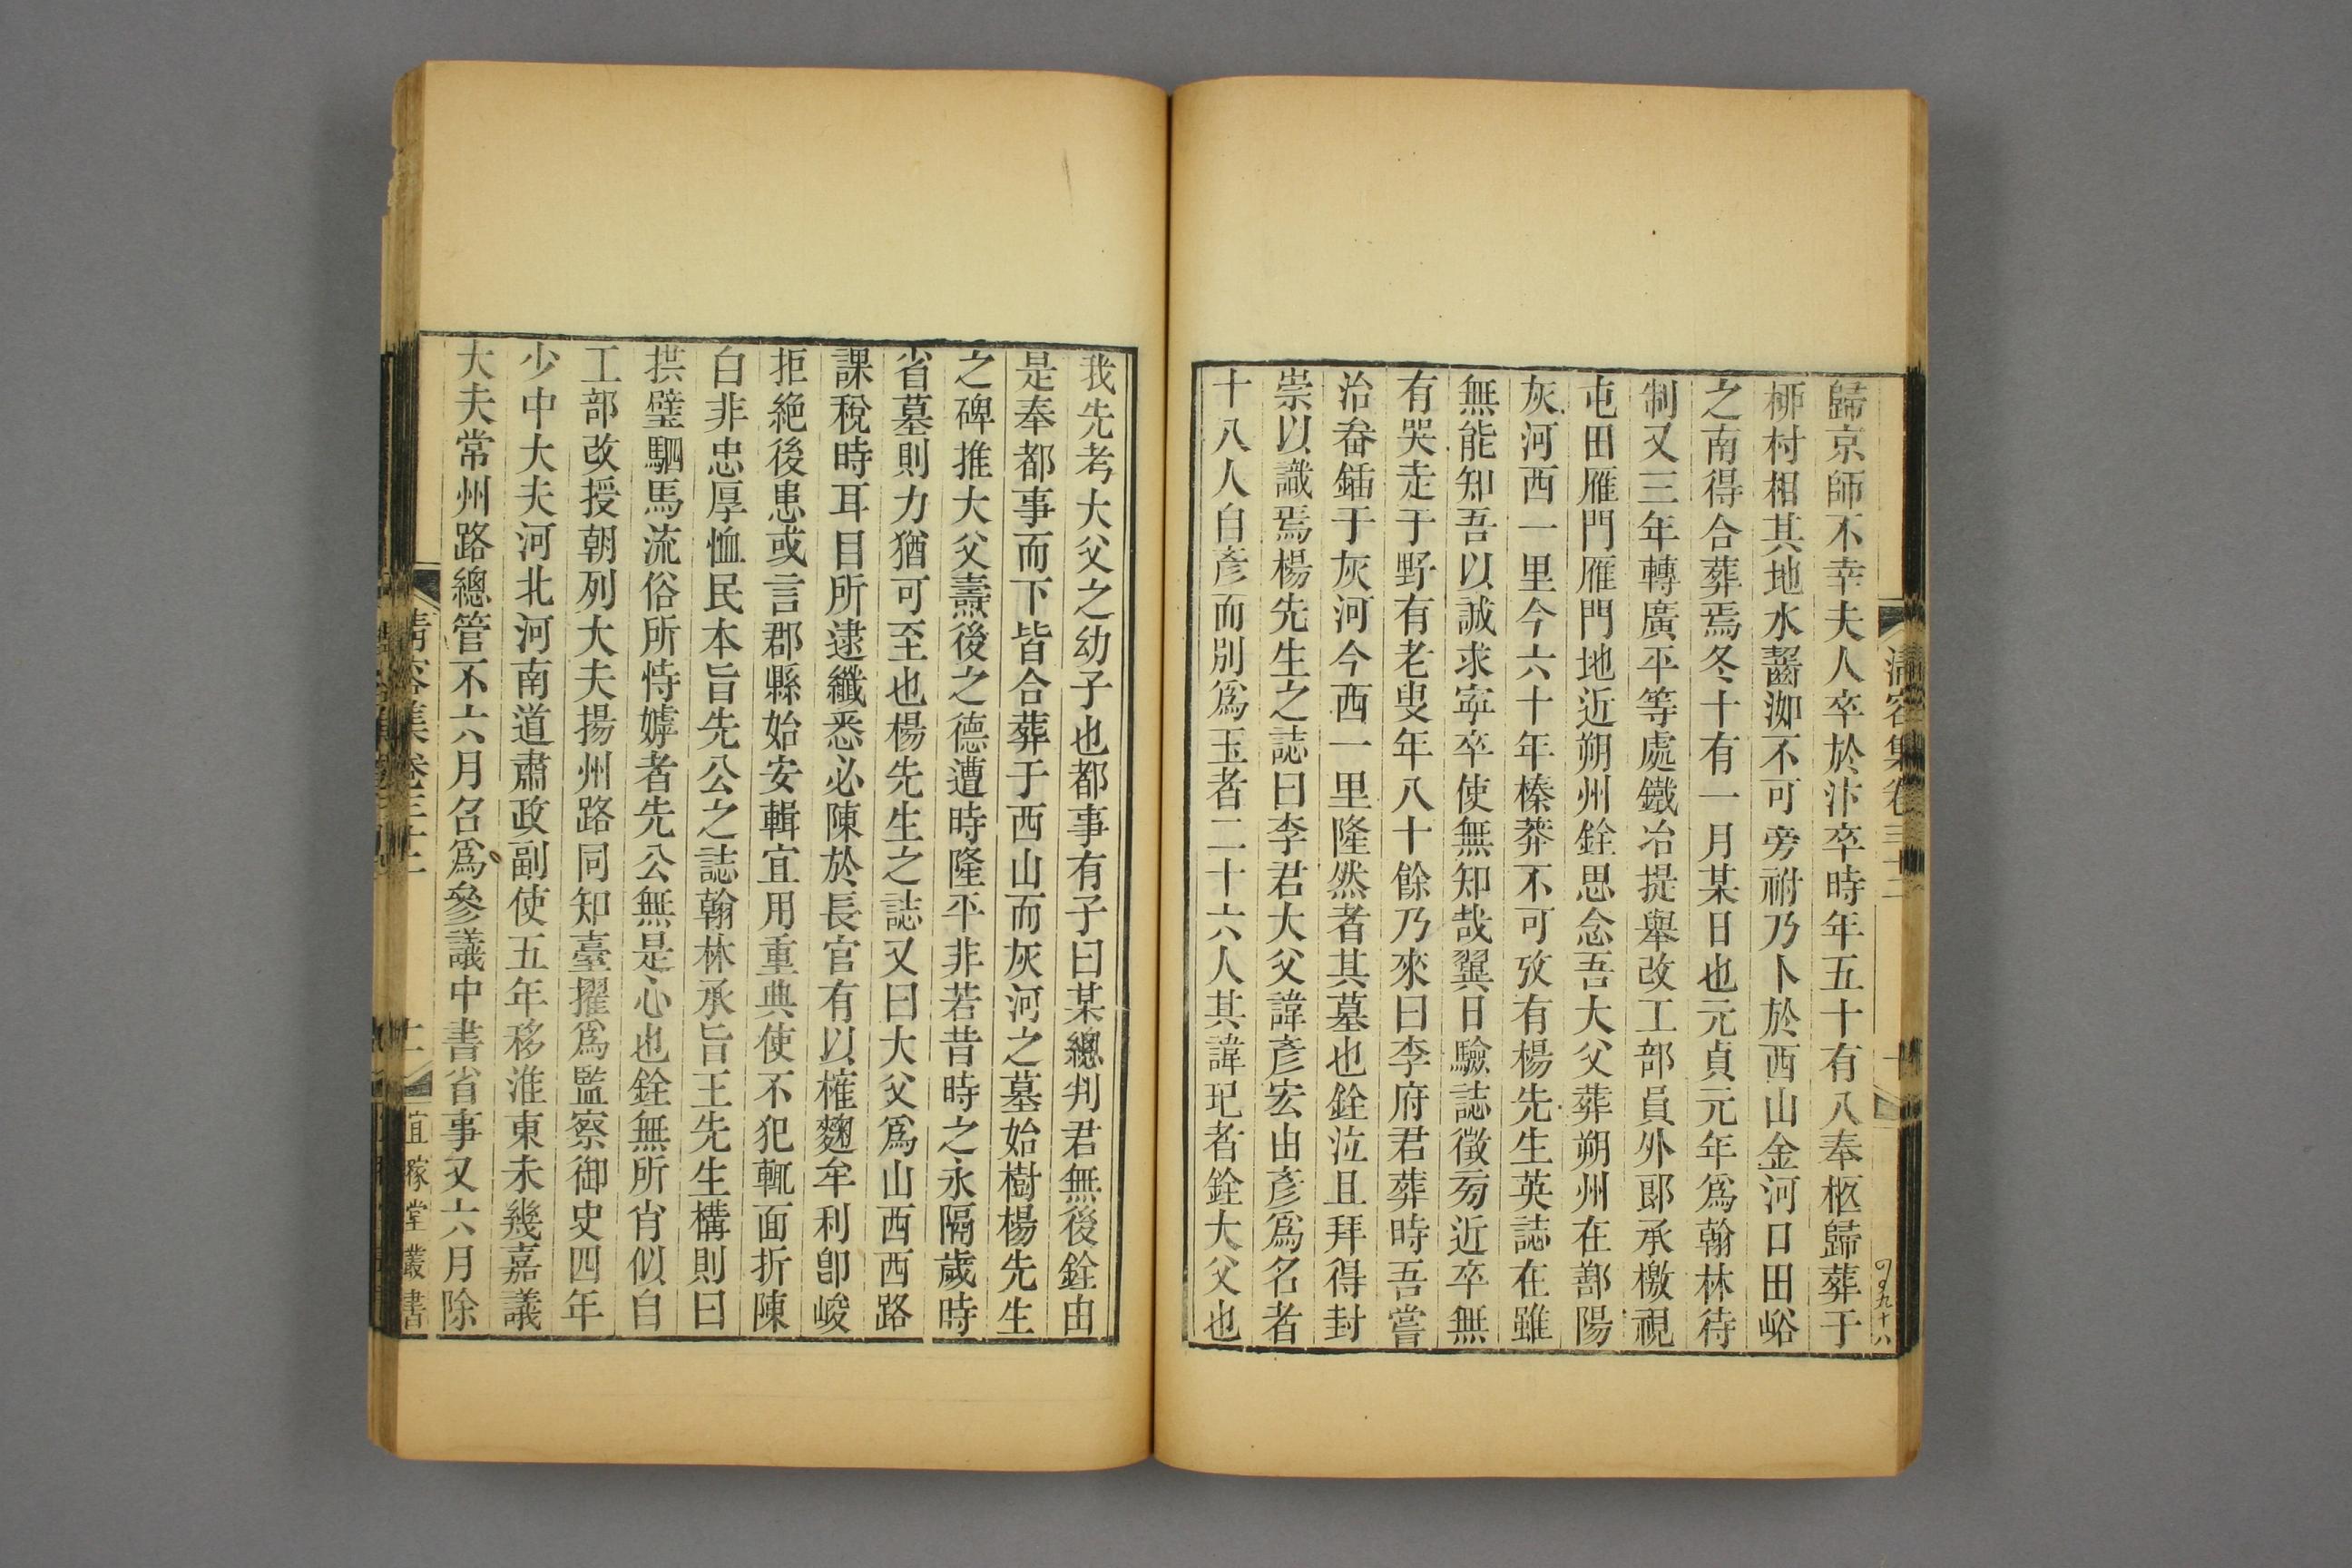 清容集卷三十二
歸京師不幸夫人卒於汴卒時年五十有八奉柩歸葬于
柳村相其地水齧洳不可旁祔乃卜於西山金河口田峪
之南得合葬焉冬十有一月某日也元貞元年爲翰林待
制又三年轉廣平等處鐵冶提舉改工部員外郎承檄視
屯田雁門雁門地近朔州銓思念吾大父葬朔州在鄯陽
灰河西一里今六十年榛莽不可攷有楊先生英誌在雖
無能知吾以誠求寜卒使無知哉翼日驗誌徵匄近卒無
有哭走于野有老叟年八十餘乃來曰李府君葬時吾嘗
治畚鍤于灰河今西一里隆然者其墓也銓泣且拜得封
崇以識焉楊先生之誌曰李君大父諱彥宏由彥爲名者
十八人自彥而別爲玉者二十六人其諱玘者銓大父也
我先考大父之幼子也都事有子曰某總判君無後銓由
是奉都事而下皆合葬于西山而灰河之墓始樹楊先生
之碑推大父燾後之德遭時隆平非若昔時之永隔歲時
省墓則力猶可至也楊先生之誌又曰大父爲山西西路
課稅時耳目所逮纖悉必陳於長官有以榷麴牟利卽峻
拒絶後患或言郡縣始安輯宜用重典使不犯輒面折陳
白非忠厚恤民本旨先公之誌翰林承旨王先生構則曰
拱璧駟馬流俗所恃嫭者先公無是心也銓無所肖似自
工部改授朝列大夫揚州路同知臺擢爲監察御史四年
少中大夫河北河南道肅政副使五年移淮東未幾嘉議
大夫常州路總管不六月召爲參議中書省事又六月除
清容集卷三十二
十一
宜稼堂叢書